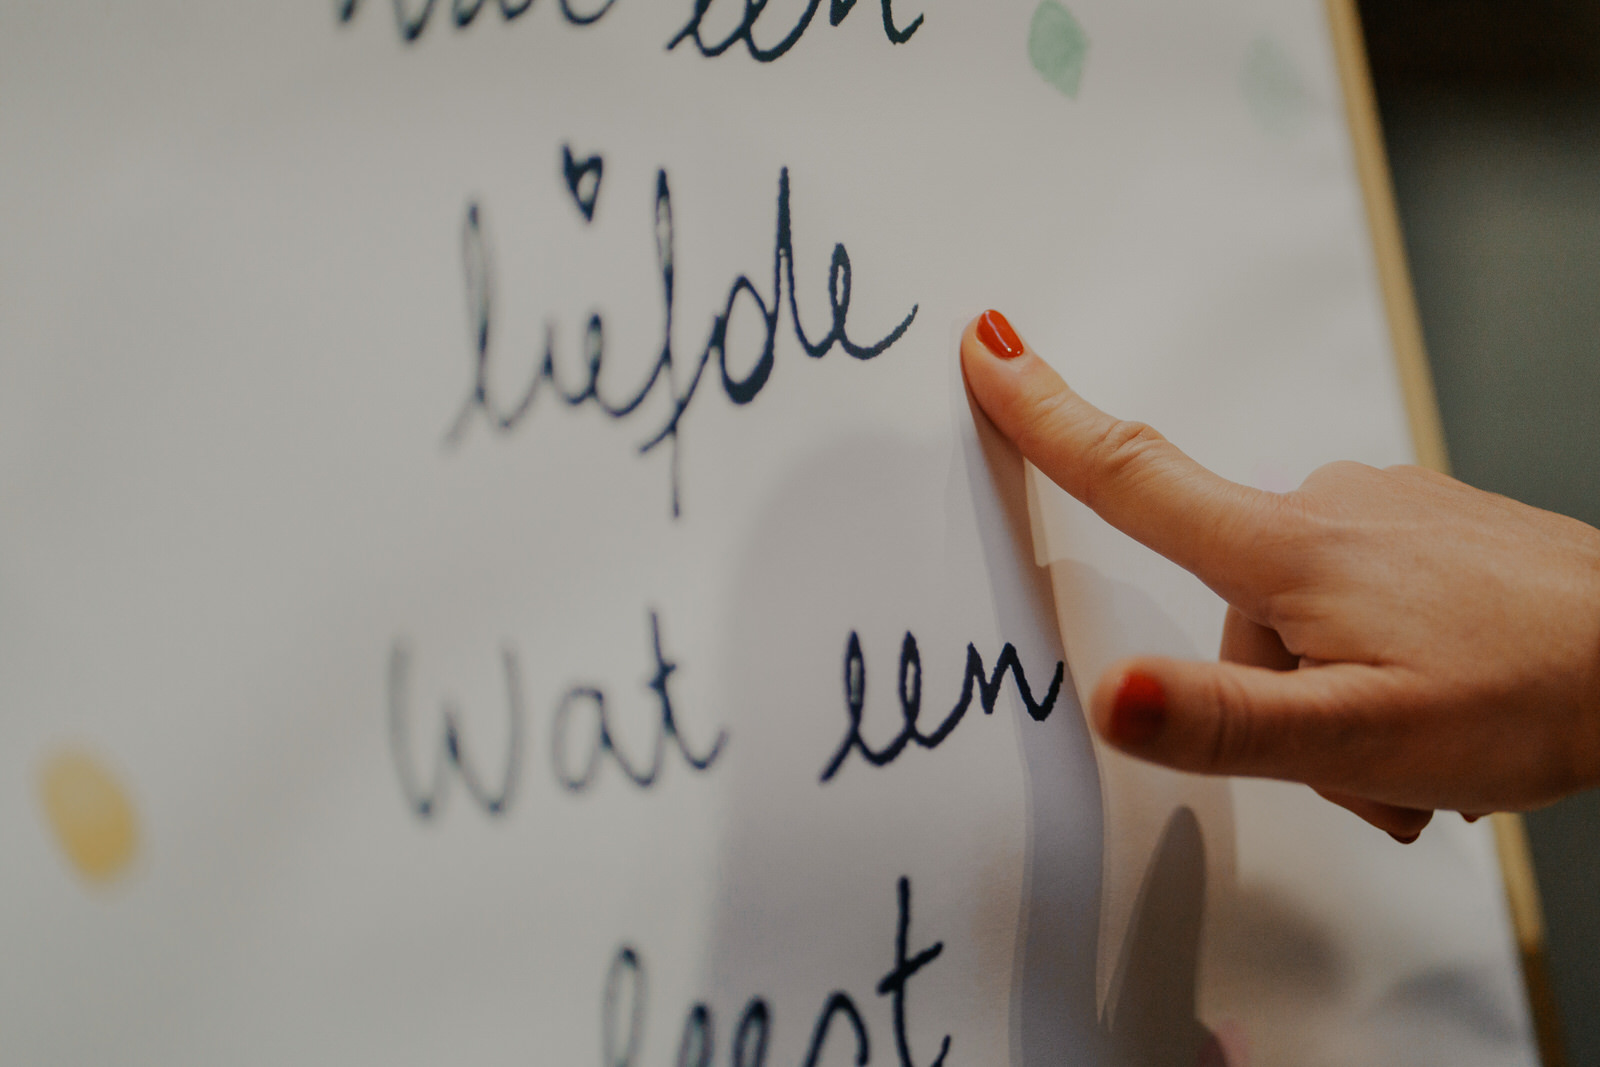 Wat een
liefde
Wat een
feest